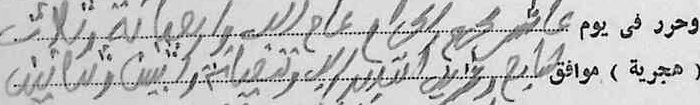 وحرر فى يوم عاشر محرم الحرام عام الف وأربعمائة وثلاث
( هجرية ) موافق سابع وعشرين أكتوبر الف وتسعمائة واثنين وثمانين